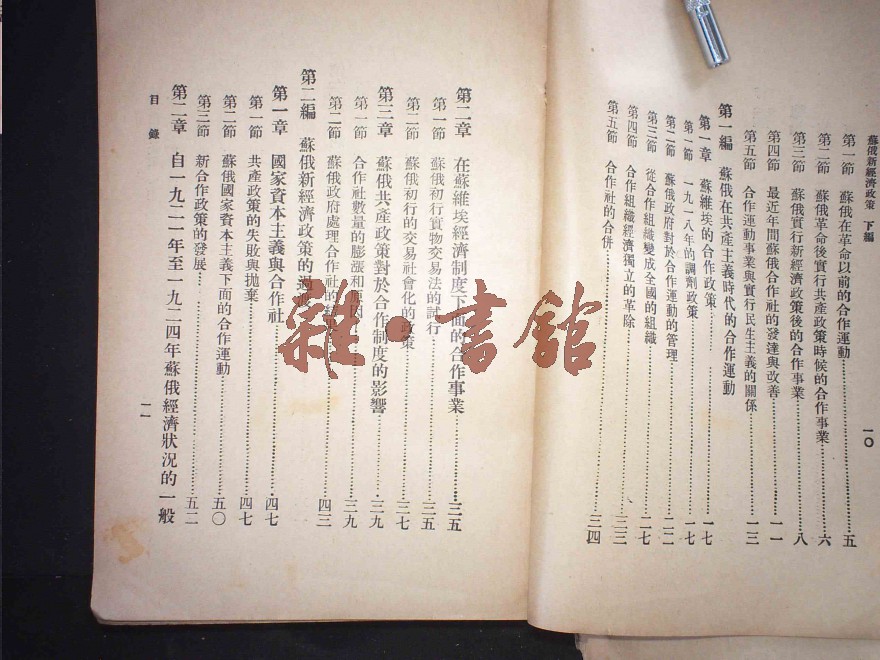 蘇俄新經濟政策 下編
一〇
第一節 蘇俄在革命以前的合作運動……五
第二節 蘇俄革命後實行共產政策時候的合作事業……六
第三節 蘇俄實行新經濟政策後的合作事業……八
第四節 最近年間蘇俄合作社的發達與改善……一一
第五節 合作運動事業與實行民生主義的關係……一三
第一編 蘇俄在共產主義時代的合作運動
第一章 蘇維埃的合作政策……一七
第一節 一九一八年的調劑政策……一七
第二節 蘇俄政府對於合作運動的管理……二二
第三節 從合作組織變成全國的組織……二七
第四節 合作組織經濟獨立的革除……三三
第五節 合作社的合併……三四
第二章 在蘇維埃經濟制度下面的合作事業……三五
第一節 蘇俄初行實物交易法的試行……三五
第二節 蘇俄初行的交易社會化的政策……三七
第三章 蘇俄共產政策對於合作制度的影響……三九
第一節 合作社數量的膨漲和原因……三九
第二節 蘇俄政府處理合作社的……四三
第二編 蘇俄新經濟政策的過
第一章 國家資本主義與合作社……四七
第一節 共產政策的失敗與拋棄……四七
第二節 蘇俄國家資本主義下面的合作運動……五〇
第三節 新合作政策的發展……五二
第二章 自一九二一年至一九二四年蘇俄經濟狀況的一般
目錄
一一
雜·書館